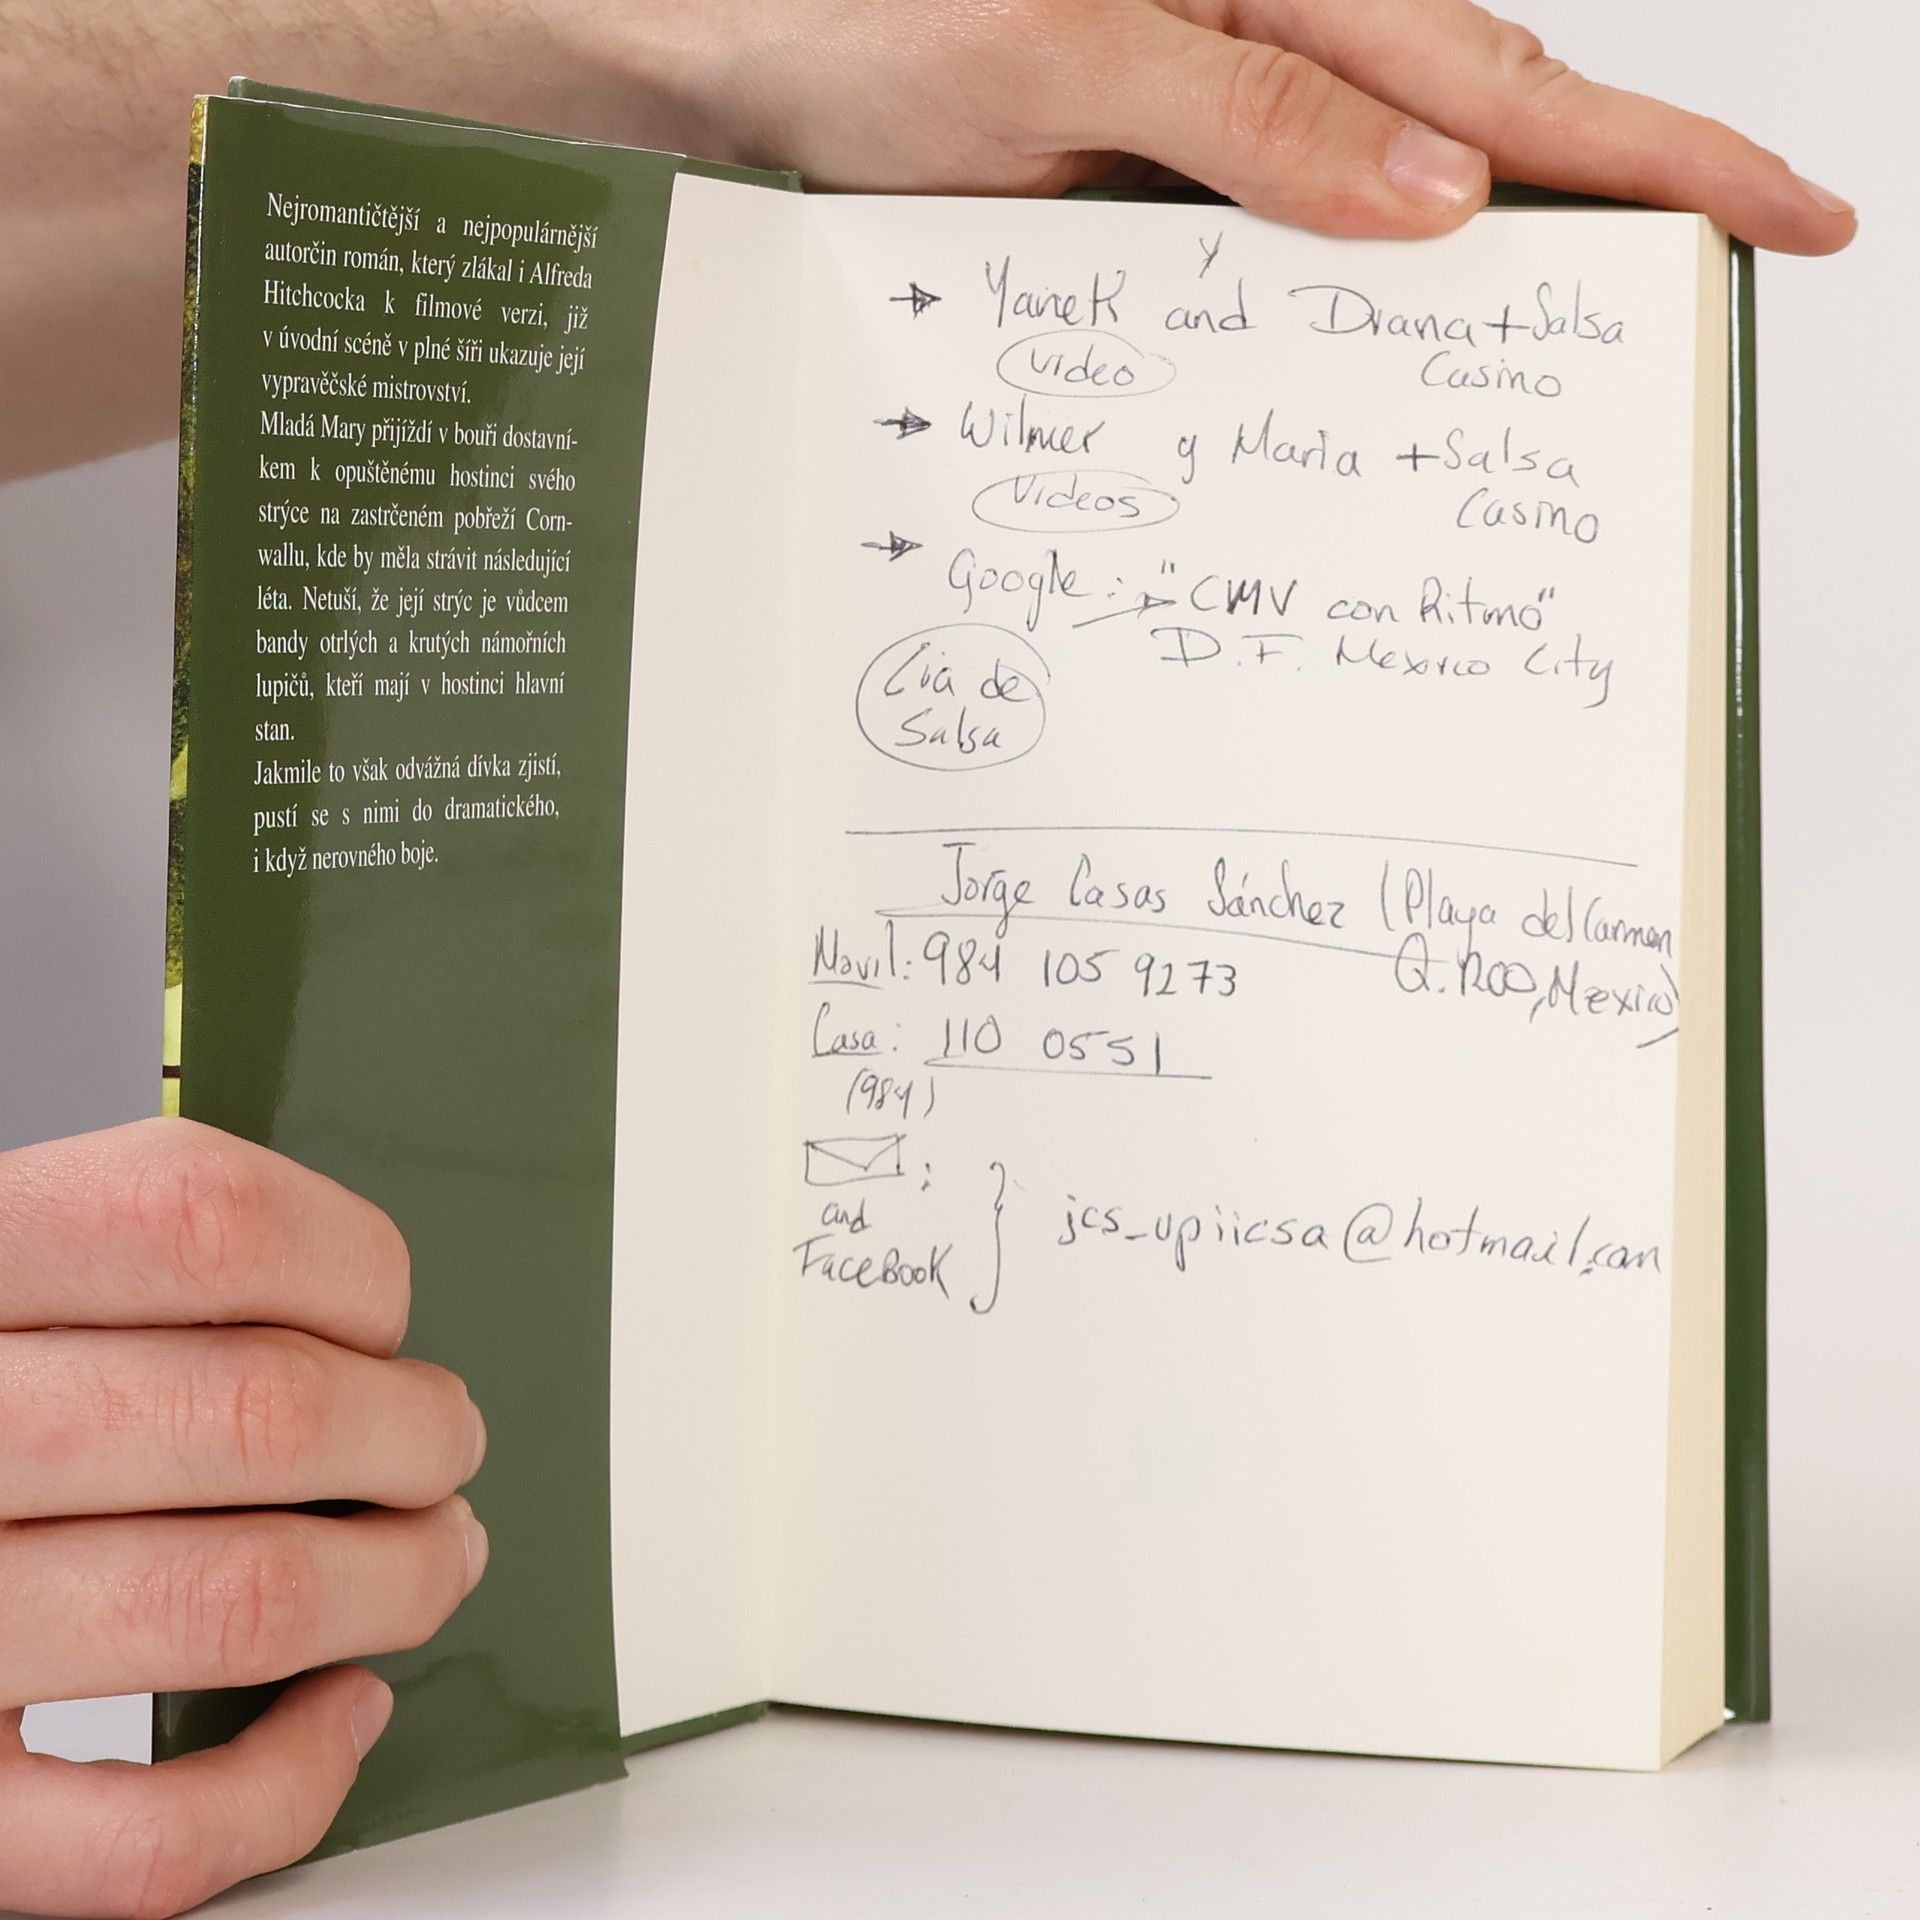 Nejromantičtější a nejpopulárnější
autorčin román, který zlákal i Alfreda
Hitchcocka k filmové verzi, již
v úvodní scéně v plné šíři ukazuje její
vypravěčské mistrovství.
Mladá Mary přijíždí v bouři dostavní-
kem k opuštěnému hostinci svého
strýce na zastrčeném pobřeží Corn-
wallu, kde by měla strávit následující
léta. Netuší, že její strýc je vůdcem
bandy otrlých a krutých námořních
lupičů, kteří mají v hostinci hlavní
stan.
Jakmile to však odvážná dívka zjistí,
pustí se s nimi do dramatického,
i když nerovného boje.
y
Yanek and Diana + Salsa
video Casino
Wilmer y Maria + Salsa
Videos Casino
Google: "CMV con Ritmo"
D.F. Mexico City
Cia de
Salsa
Jorge Casas Sánchez (Playa del Carmen
Q. ROO, Mexico)
Movil: 984 105 9273
Casa: 110 0551
(984)
:
and
FaceBook } jcs_upiicsa@hotmail.com